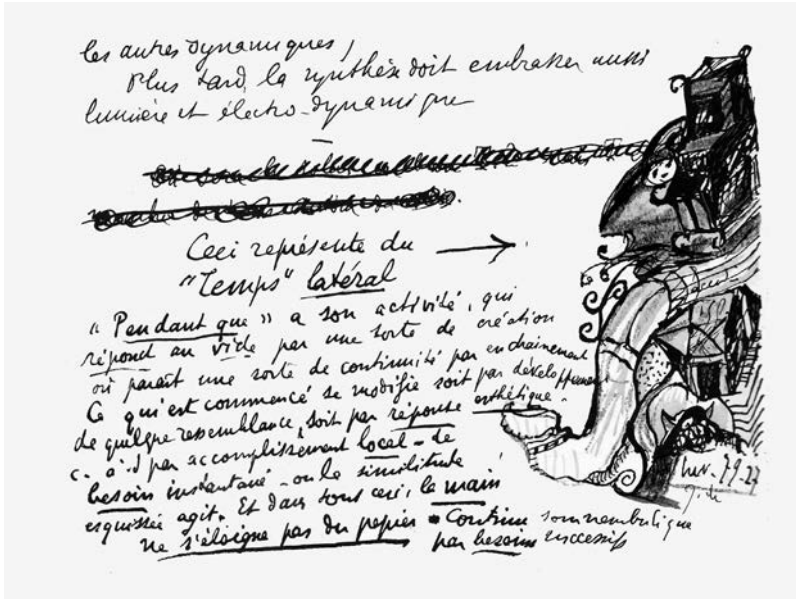 les autres dynamiques,
Plus tard, la synthèse doit embrasser aussi
lumière et électro-dynamique
Ceci représente du
"Temps" latéral
« Pendant que » a son activité, qui
répond au vide par une sorte de création
où paraît une sorte de continuité par enchainement
Ce qui est commencé se modifie soit par développement
de quelque ressemblance, soit par réponse esthétique -
c. à. d par accomplissement local - de
besoin instantané - ou la similitude
esquissée agit. Et dans tout ceci, la main
ne s'éloigne pas du papier - Continu somnambulique
par besoins successifs